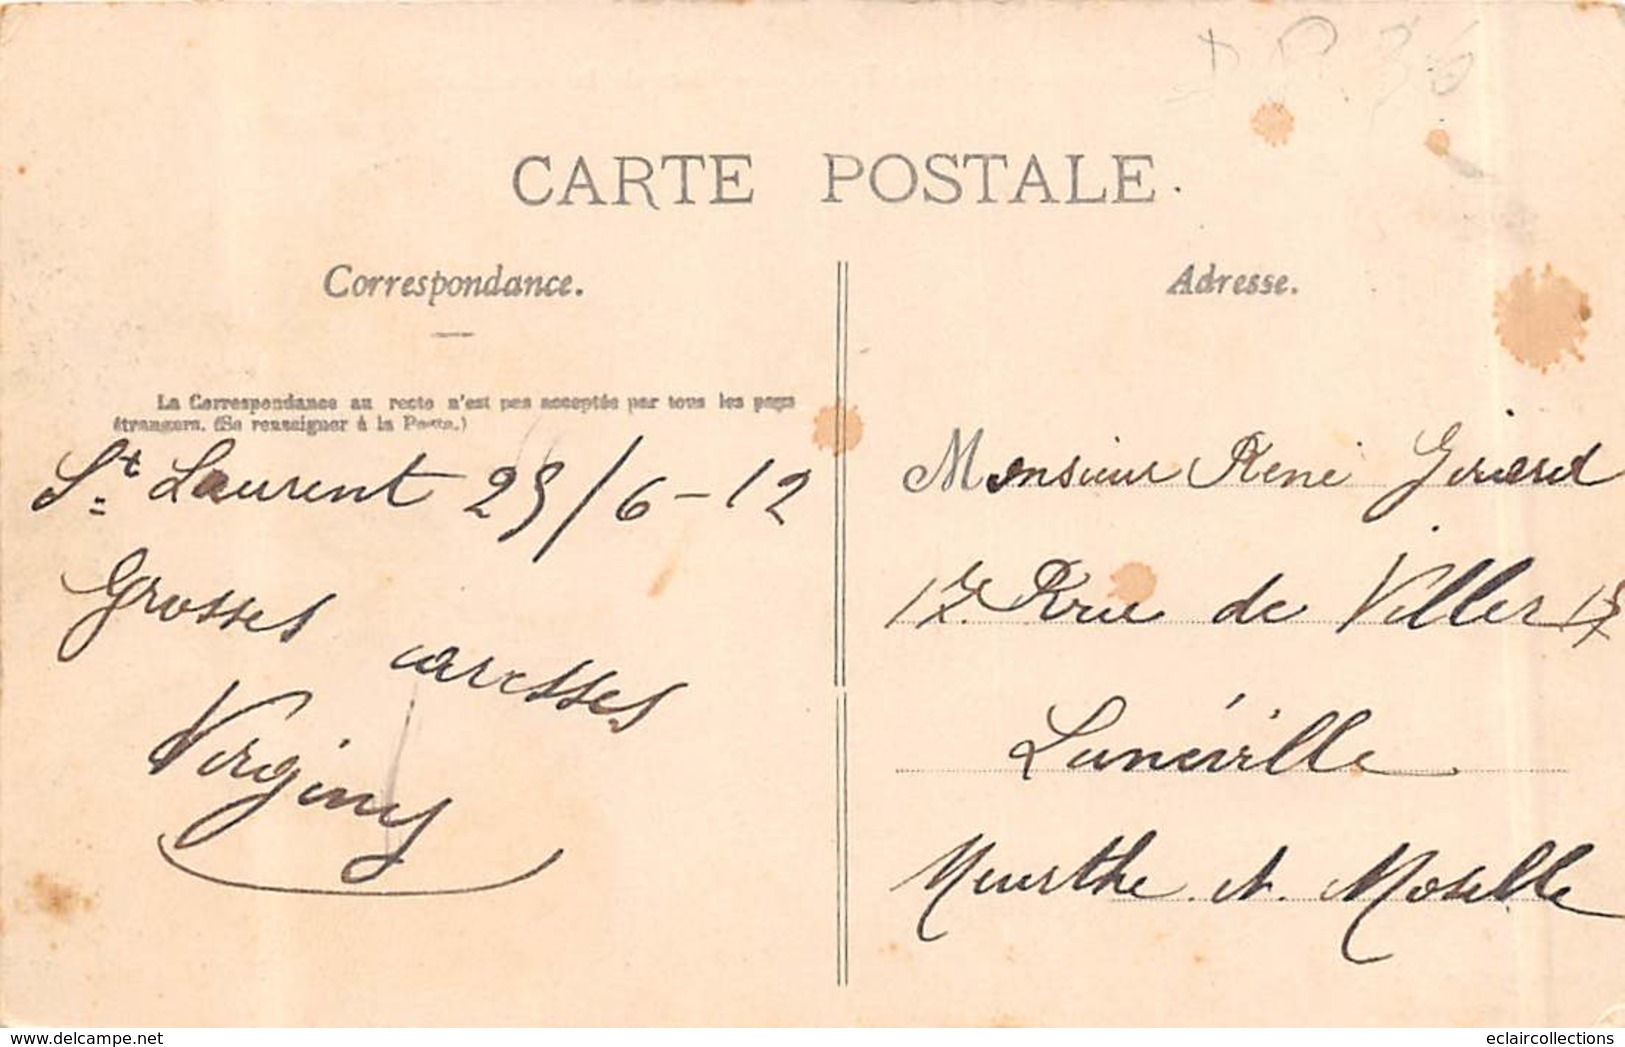 CARTE POSTALE.
Correspondance.
La Correspondance au recto n'est pas acceptée par tous les pays
étrangers. (Se renseigner à la Poste.)
St Laurent 25/6-12
Grosses caresses
Virginy
Adresse.
Monsieur René Girard
17. Rue de Viller 17
Lunéville
Meurthe et Moselle
delcampe.net
eclaircollections